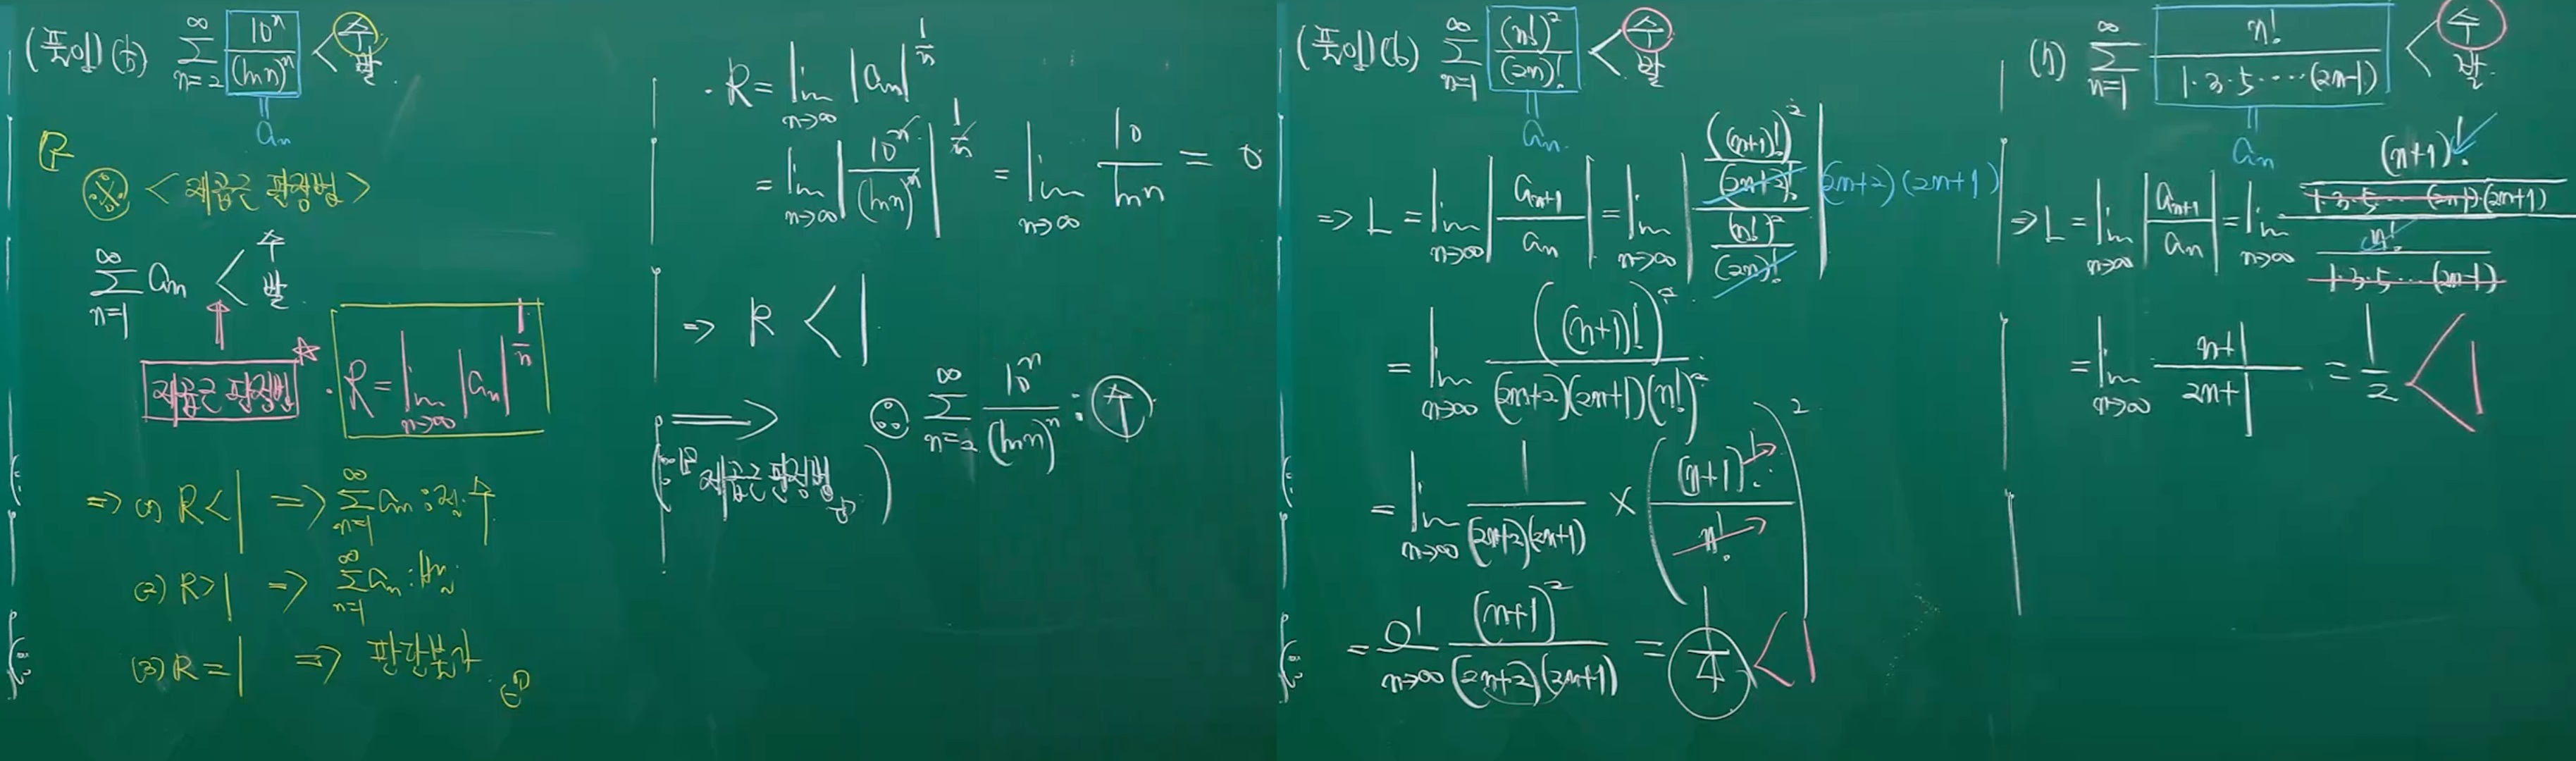 (풀이)(b) ∑_{n=2}^{∞} 10^n/(ln n)^n < 수 발
‖
a_n
※ < 제곱근 판정법 >
∑_{n=1}^{∞} a_n < 수 발
제곱근 판정법 ☆ · R = lim_{n→∞} |a_n|^{1/n}
⇒ (1) R < 1 ⇒ ∑_{n=1}^{∞} a_n : 절.수
(2) R > 1 ⇒ ∑_{n=1}^{∞} a_n : 발
(3) R = 1 ⇒ 판단불가
· R = lim_{n→∞} |a_n|^{1/n}
= lim_{n→∞} |10^n/(ln n)^n|^{1/n} = lim_{n→∞} 10/ln n = 0
⇒ R < 1
⟹ ∴ ∑_{n=2}^{∞} 10^n/(ln n)^n : 수
(∵ 제곱근 판정법)
(풀이)(b) ∑_{n=1}^{∞} (n!)^2/(2n)! < 수 발
‖
a_n
⇒ L = lim_{n→∞} |a_{n+1}/a_n| = lim_{n→∞} |(((n+1)!)^2/(2n+2)!)/((n!)^2/(2n)!)| (2n+2)(2n+1)
= lim_{n→∞} ((n+1)!)^2/((2n+2)(2n+1)(n!)^2)
= lim_{n→∞} 1/((2n+2)(2n+1)) × ((n+1)!/n!)^2
= lim_{n→∞} (n+1)^2/((2n+2)(2n+1)) = 1/4 < 1
(h) ∑_{n=1}^{∞} n!/(1·3·5·····(2n-1)) < 수 발
‖
a_n
⇒ L = lim_{n→∞} |a_{n+1}/a_n| = lim_{n→∞} ((n+1)!/(1·3·5·····(2n-1)·(2n+1)))/(n!/(1·3·5·····(2n-1)))
= lim_{n→∞} (n+1)/(2n+1) = 1/2 < 1